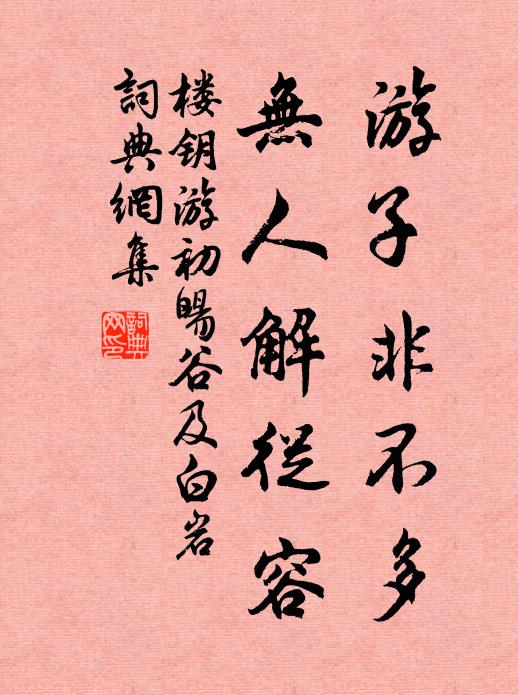 游子非不多
無人解從容
楼钥游初暘谷及白岩
詞典網集
詞典網印